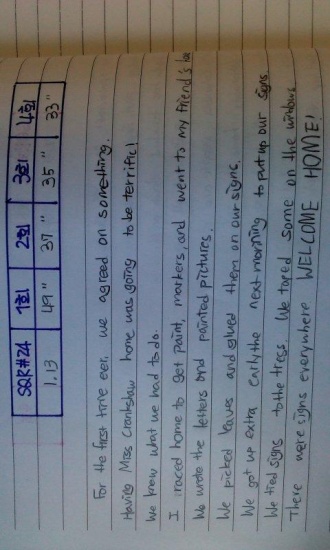 SQR#24 1회 2회 3회 4회
1.13 49" 37" 35" 33"
For the first time ever, we agreed on something.
Having Miss Crankshaw home was going to be terrific!
We knew what we had to do.
I raced home to get paint, markers, and went to my friend's
We wrote the letters and painted pictures.
We picked leaves and glued them on our signs.
We got up extra early the next morning to put up our signs
We tied signs to the tress We taped some on the windows
There were signs everywhere WELCOME HOME!